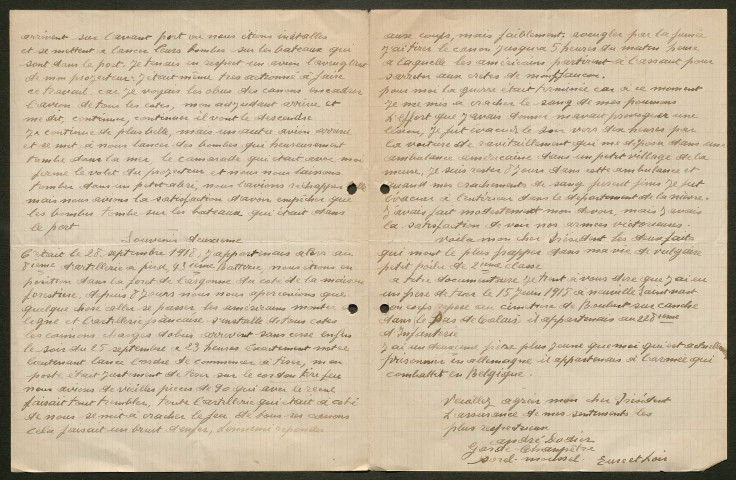 arrivent sur l'avant port ou nous étions installés
et se mettent a lancer leurs bombes sur les bateaux qui
sont dans le port. je tenais en respect un avion l'aveuglant
de mon projecteur jetait même tres actionné a faire
ce travail car je voyais les obus des canons encadrer
l'avion de tous les cotés, mon adjudant arrive et
me dit, continuer, continuer il vont le descendre
Je continue de plus belle, mais un autre avion arrive
et se met a nous lancer des bombes que heureusement
tombe dans la mer, le camarade que était avec moi
ferme le volet du projecteur et nous nous laissons
tomber dans un petit abri, nous l'avions réchapper
mais nous avons la satisfaction d'avoir empêcher que
les bombes tombe sur les bateaux qui était dans
le port
Souvenir deuxième
C'était le 28 septembre 1918, J'appartenais alors au
8ième d'artillerie a pied, 93ième Batterie, nous étions en
position dans la foret de l'argonne du coté de la maison
forestière, depuis 8 jours nous nous apercevions que
quelque chose aller se passer les américains monter en
ligne et l'artillerie francaise s'installe de tous cotés
les camions chargés d'obus arrivent sans cesse enfin
le soir du 25 septembre a 23 heures exactement notre
lieutenant lance l'ordre de commencer a tirer, mon
poste était justement de tenir sur le cordon tire feu
nous avions de vieilles pieces de 90 qui avec le recul
faisait tout trembler, toute l'artillerie qui était a coté
de nous se met a cracher le feu de tous ses canons
cela faisait un bruit d'enfer, l'ennemi répondu
aux coups, mais faiblement, aveugler par la fumée
J'ai tirer le canon jusqu'a 5 heures du matin heure
a laquelle les américains partirent a l'assaut pour
s'arreter aux cretes de monfaucon.
pour moi la guerre était terminée car a ce moment
Je me mis a cracher le sang de mes poumons
L'effort que j'avais donner m'avait provoquer une
lésion, Je fut évacuer le soir vers dix heures par
la voiture de ravitaillement qui me déposa dans une
ambulance américaine dans un petit village de la
meuse, Je suis rester 8 jours dans cette ambulance et
quand mes crachements de sang furent finis Je fut
évacuer a l'intérieur dans le département de la nièvre.
J'avais fait modestement mon devoir, mais J'avais
la satisfaction de voir nos armes victorieuses.
Voila mon cher Président les deux faits
qui mont le plus frapper dans ma vie de vulgaire
petit poilu de 2ième classe
a titre documentaire Je tient a vous dire que J'ai eu
un frère de tuer le 15 Juin 1915 a neuville saint vaast
son corps repose au cimetiere de Boubert sur canche
dans le Pas de Calais il appartenais au 228ième
d'Infanterie
J'ai un deuxieme frère plus jeune que moi qui est actuellement
prisonnier en allemagne il appartenais a l'armée qui
combattit en Belgique.
Veuillez agréer mon cher Président
L'assurance de mes sentiments les
plus respectueux
andré Dodier
Garde Champêtre
Sorel-moussel Eure et Loir